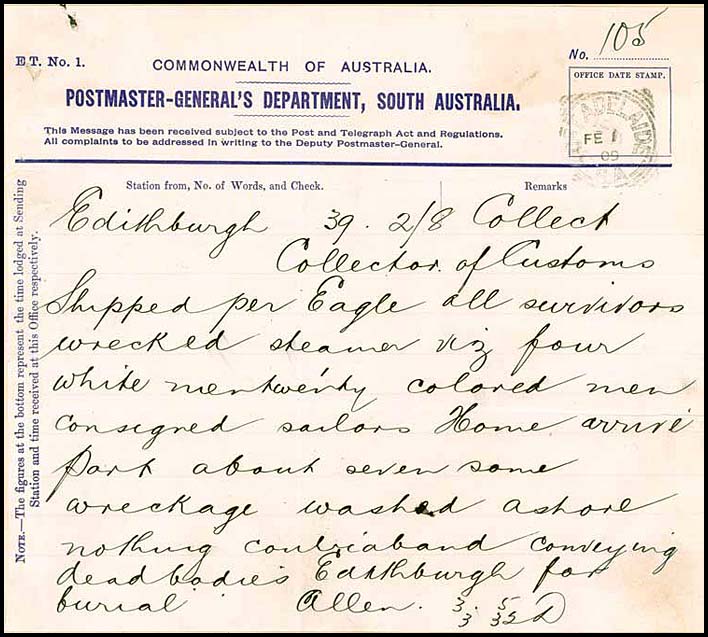 No. 105
E.T. No. 1.
COMMONWEALTH OF AUSTRALIA.
OFFICE DATE STAMP.
POSTMASTER-GENERAL'S DEPARTMENT, SOUTH AUSTRALIA.
ADELAIDE
FE 1
09
S.A
This Message has been received subject to the Post and Telegraph Act and Regulations.
All complaints to be addressed in writing to the Deputy Postmaster-General.
Station from, No. of Words, and Check.
Remarks
Edithburgh 39. 2/8 Collect
Collector of Customs
Shipped per Eagle all survivors
wrecked steamer viz four
white men twenty colored men
consigned sailors Home arrive
Port about seven some
wreckage washed ashore
nothing contriaband conveying
dead bodies Edithburgh for
burial Allen.
NOTE.—The figures at the bottom represent the time lodged at Sending
Station and time received at this Office respectively.